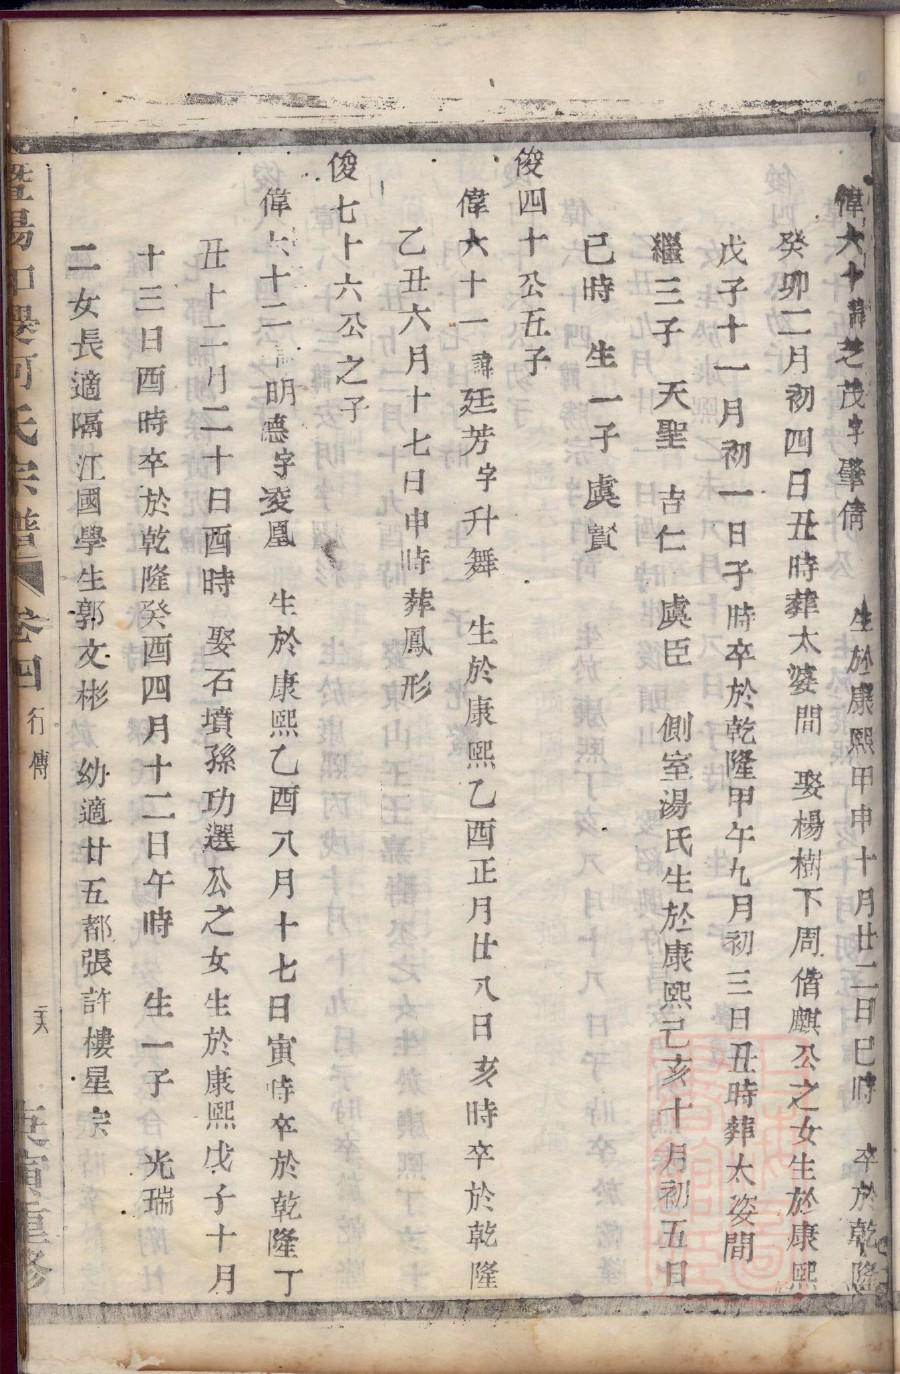 偉六十諱芝茂字肇倩　生於康熙甲申十月廿二日巳時　卒於乾隆
癸卯二月初四日丑時葬太婆間　娶楊樹下周偕麒公之女生於康熙
戊子十一月初一日子時卒於乾隆甲午九月初三日丑時葬太姿間
繼三子　天聖　吉仁　虞臣　側室湯氏生於康熙己亥十月初五日
巳時　生一子　虞賓
俊四十公五子
偉六十一諱廷芳字升舞　生於康熙乙酉正月廿八日亥時卒於乾隆
乙丑六月十七日申時葬鳳形
俊七十六公之子
偉六十二諱明德字凌凰　生於康熙乙酉八月十七日寅時卒於乾隆丁
丑十二月二十日酉時　娶石墳孫功選公之女生於康熙戊子十月
十三日酉時卒於乾隆癸酉四月十二日午時　生一子　光瑞
二女長適隔江國學生郭文彬　幼適廿五都張許樓星宗
暨陽 何氏宗譜　卷四　行傳　庚寅重修